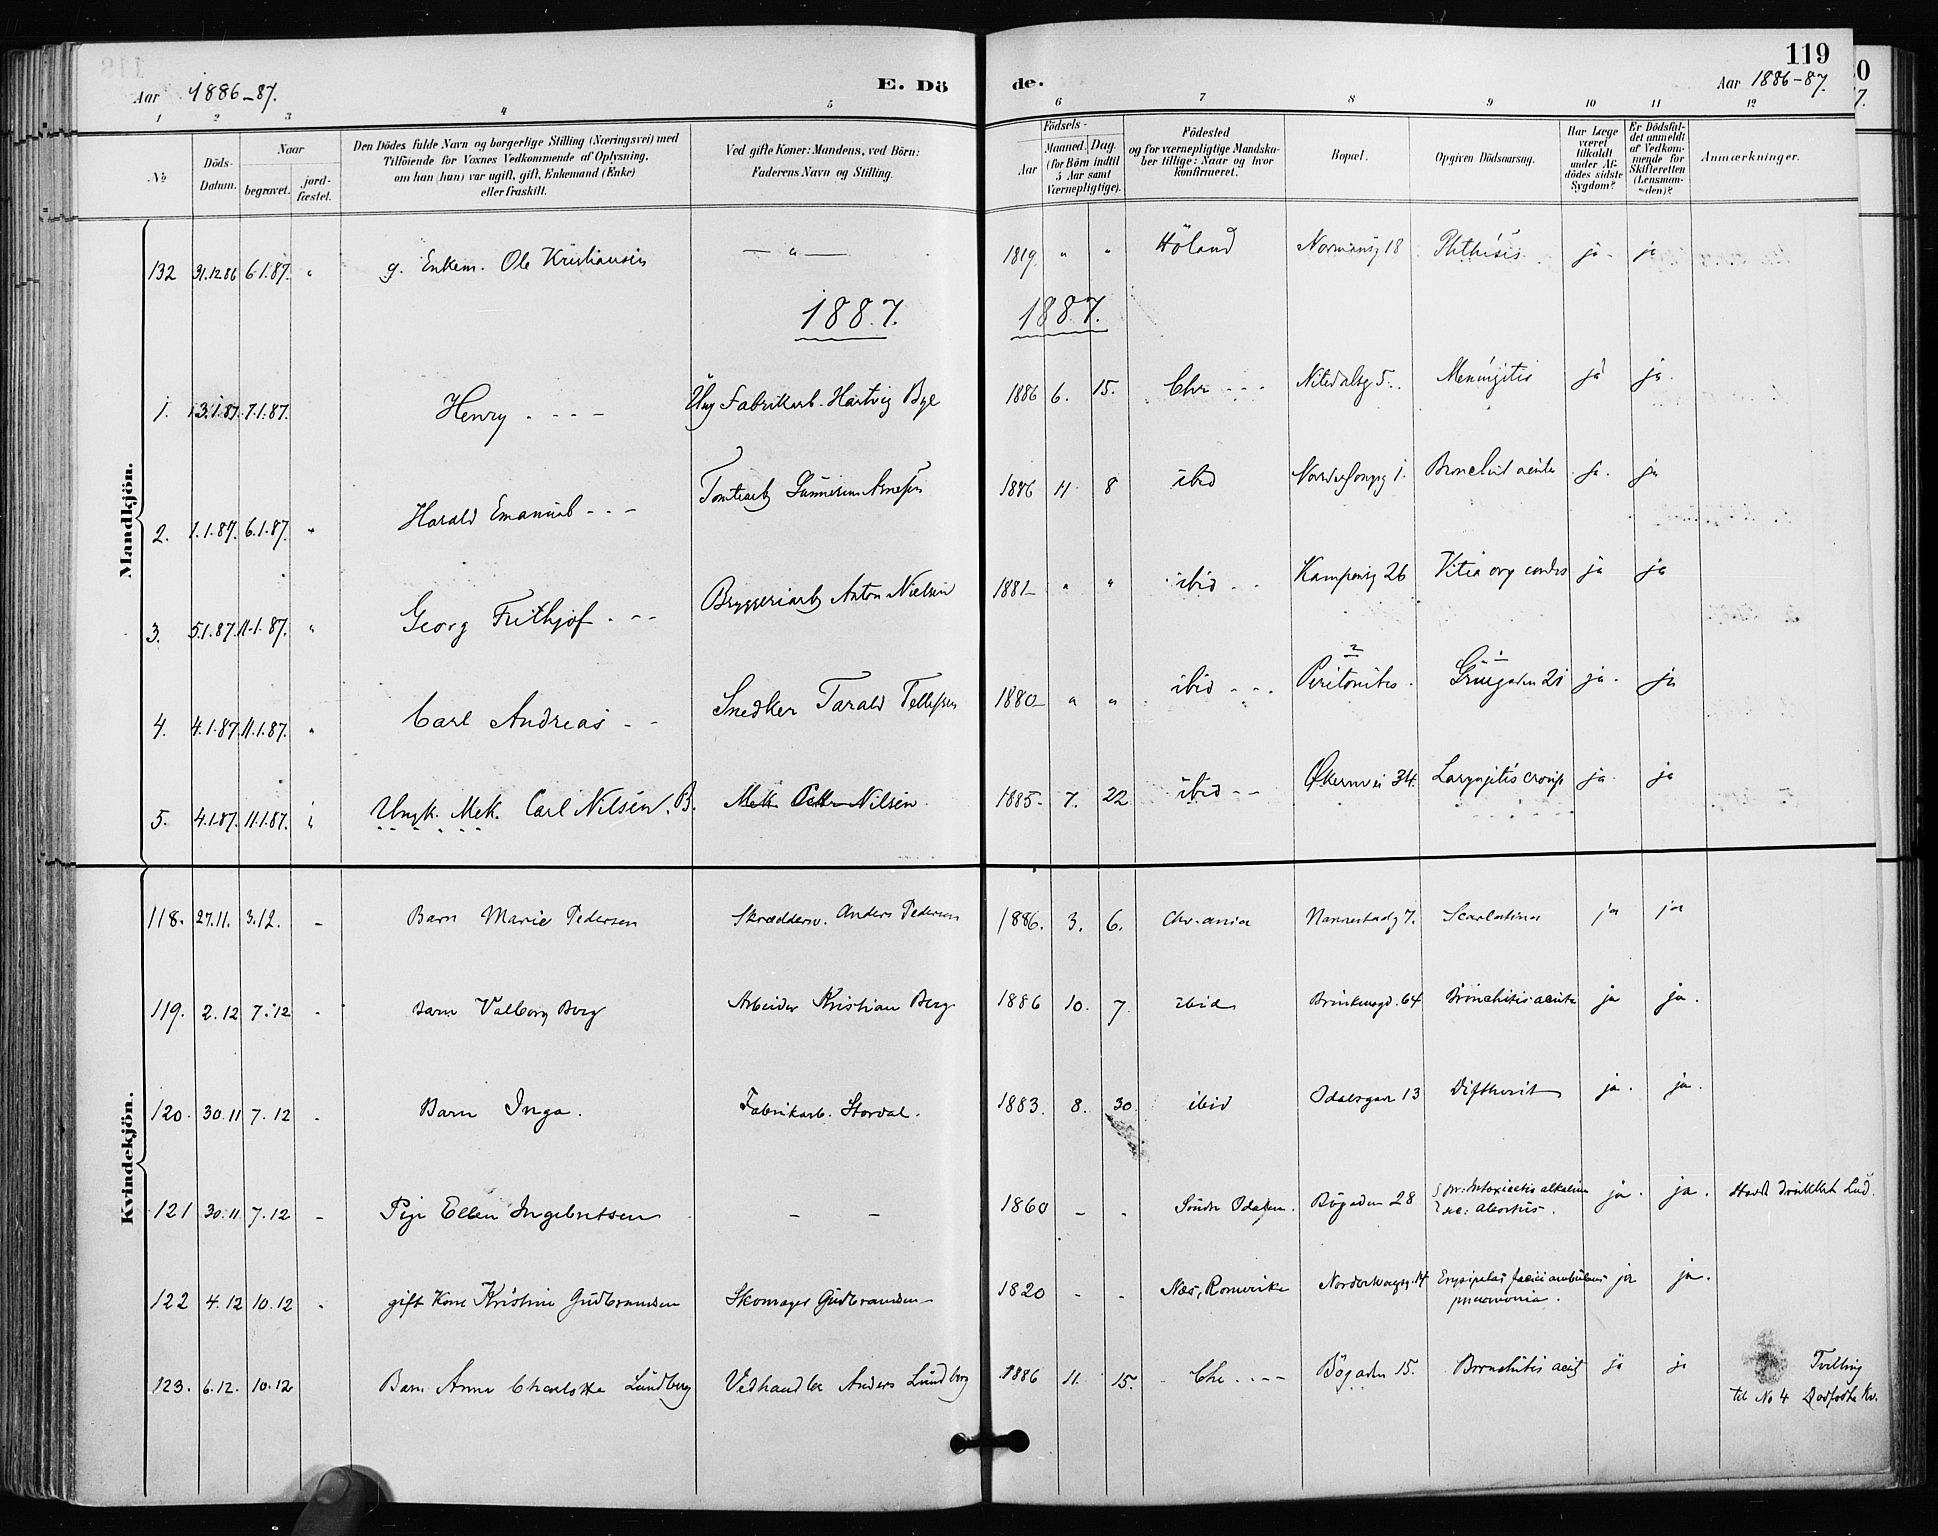 119
Aar 1886-87.
E. Dö
de.
Aar 1886-87.
1 2 3 4 5 6 7 8 9 10 11 12
No
Döds-Datum.
Naar
begravet.
jord-fæstet.
Den Dödes fulde Navn og borgerlige Stilling (Næringsvei) med
Tilföiende for Voxnes Vedkommende af Oplysning,
om han (hun) var ugift, gift, Enkemand (Enke)
eller fraskilt.
Ved gifte Koner: Mandens, ved Börn:
Faderens Navn og Stilling.
Födsels-
Aar
Maaned. Dag.
(for Börn indtil
5 Aar samt
Værnepligtige).
Födested
og for værnepligtige Mandska-
ber tillige: Naar og hvor
konfirmeret.
Bopæl.
Opgiven Dödsaarsag.
Har Læge
været
tilkaldt
under Af-
dödes sidste
Sygdom?
Er Dödsfal-
det anmeldt
af Vedkom-
mende for
Skifteretten
(Lensman-
den)?
Anmærkninger.
Mandkjön.
132 31.12.86 6.1.87. " g. Enkem. Ole Kristiansen — " — 1819. " " Höland Normansg 18 Phthisis. ja - ja
1887. 1887.
1. 3.1.87. 7.1.87. Henry - - - - Ung Fabrikarb. Hartvig Bye 1886 6. 15. Chr - - - Nitedalsg 5. Meningitis ja ja.
2. 1.1.87. 6.1.87. " Harald Emanuel - - - 1886 11 8 ibid ja. ja
3. 5.1.87. 11.1.87. " Georg Frithjof - - - Bryggeriarb Anton Nielsen 1881 " " ibid - - Kampensg 26 Vitia org cordis ja ja
4. 4.1.87. 11.1.87. " Carl Andreas - - Snedker Tarald Tellefsen 1880 " " ibid - - - 2 Peritonitis. 1 21 ja. ja
5. 4.1.87. 11.1.87. " Ungk. Mek. Carl Nilsen. B. Mek. Nilsen 1885 - 7. 22 ibid - - Økernvei 34. Laryngitis croup ja. ja
Kvindekjön.
118. 27.11. 3.12. - Barn Marie Pedersen Skræddersv. Anders Pedersen 1886. 3. 6. Chr.ania Nannestadg 7. Scarlatina ja ja
119. 2.12 7.12 - Barn Valborg Berg Arbeider Kristian Berg 1886 10. 7 ibid 64 Bronchitis acuta ja ja.
120. 30.11 7.12 - Barn Inga. Fabrikarb. Stordal. 1883. 8. 30. ibid Odalsgaden 13 Diftherit ja. ja.
121 30.11 7.12 - Pige Ellen Ingebretsen — — 1860 - - Söndre Odalen. Bögaden 28 pr: Intoxicatio alkalina ja. ja. Havde drukket Lud.
sec: abortus.
122 4.12 10.12 - gift Kone Kristine Gudbrandsen Skomager Gudbrandsen 1820 - - Næs, Romerike 14 Erysipelas faciei ambulans ja ja.
pneumonia.
123. 6.12. 10.12 Barn Anna Charlotte Lundberg Vedhandler Anders Lundberg 1886 11. 15. - Chr - - - - Bögaden 15. Bronchitis acut ja ja Tvilling
til No 4 Dødfødte Kv.